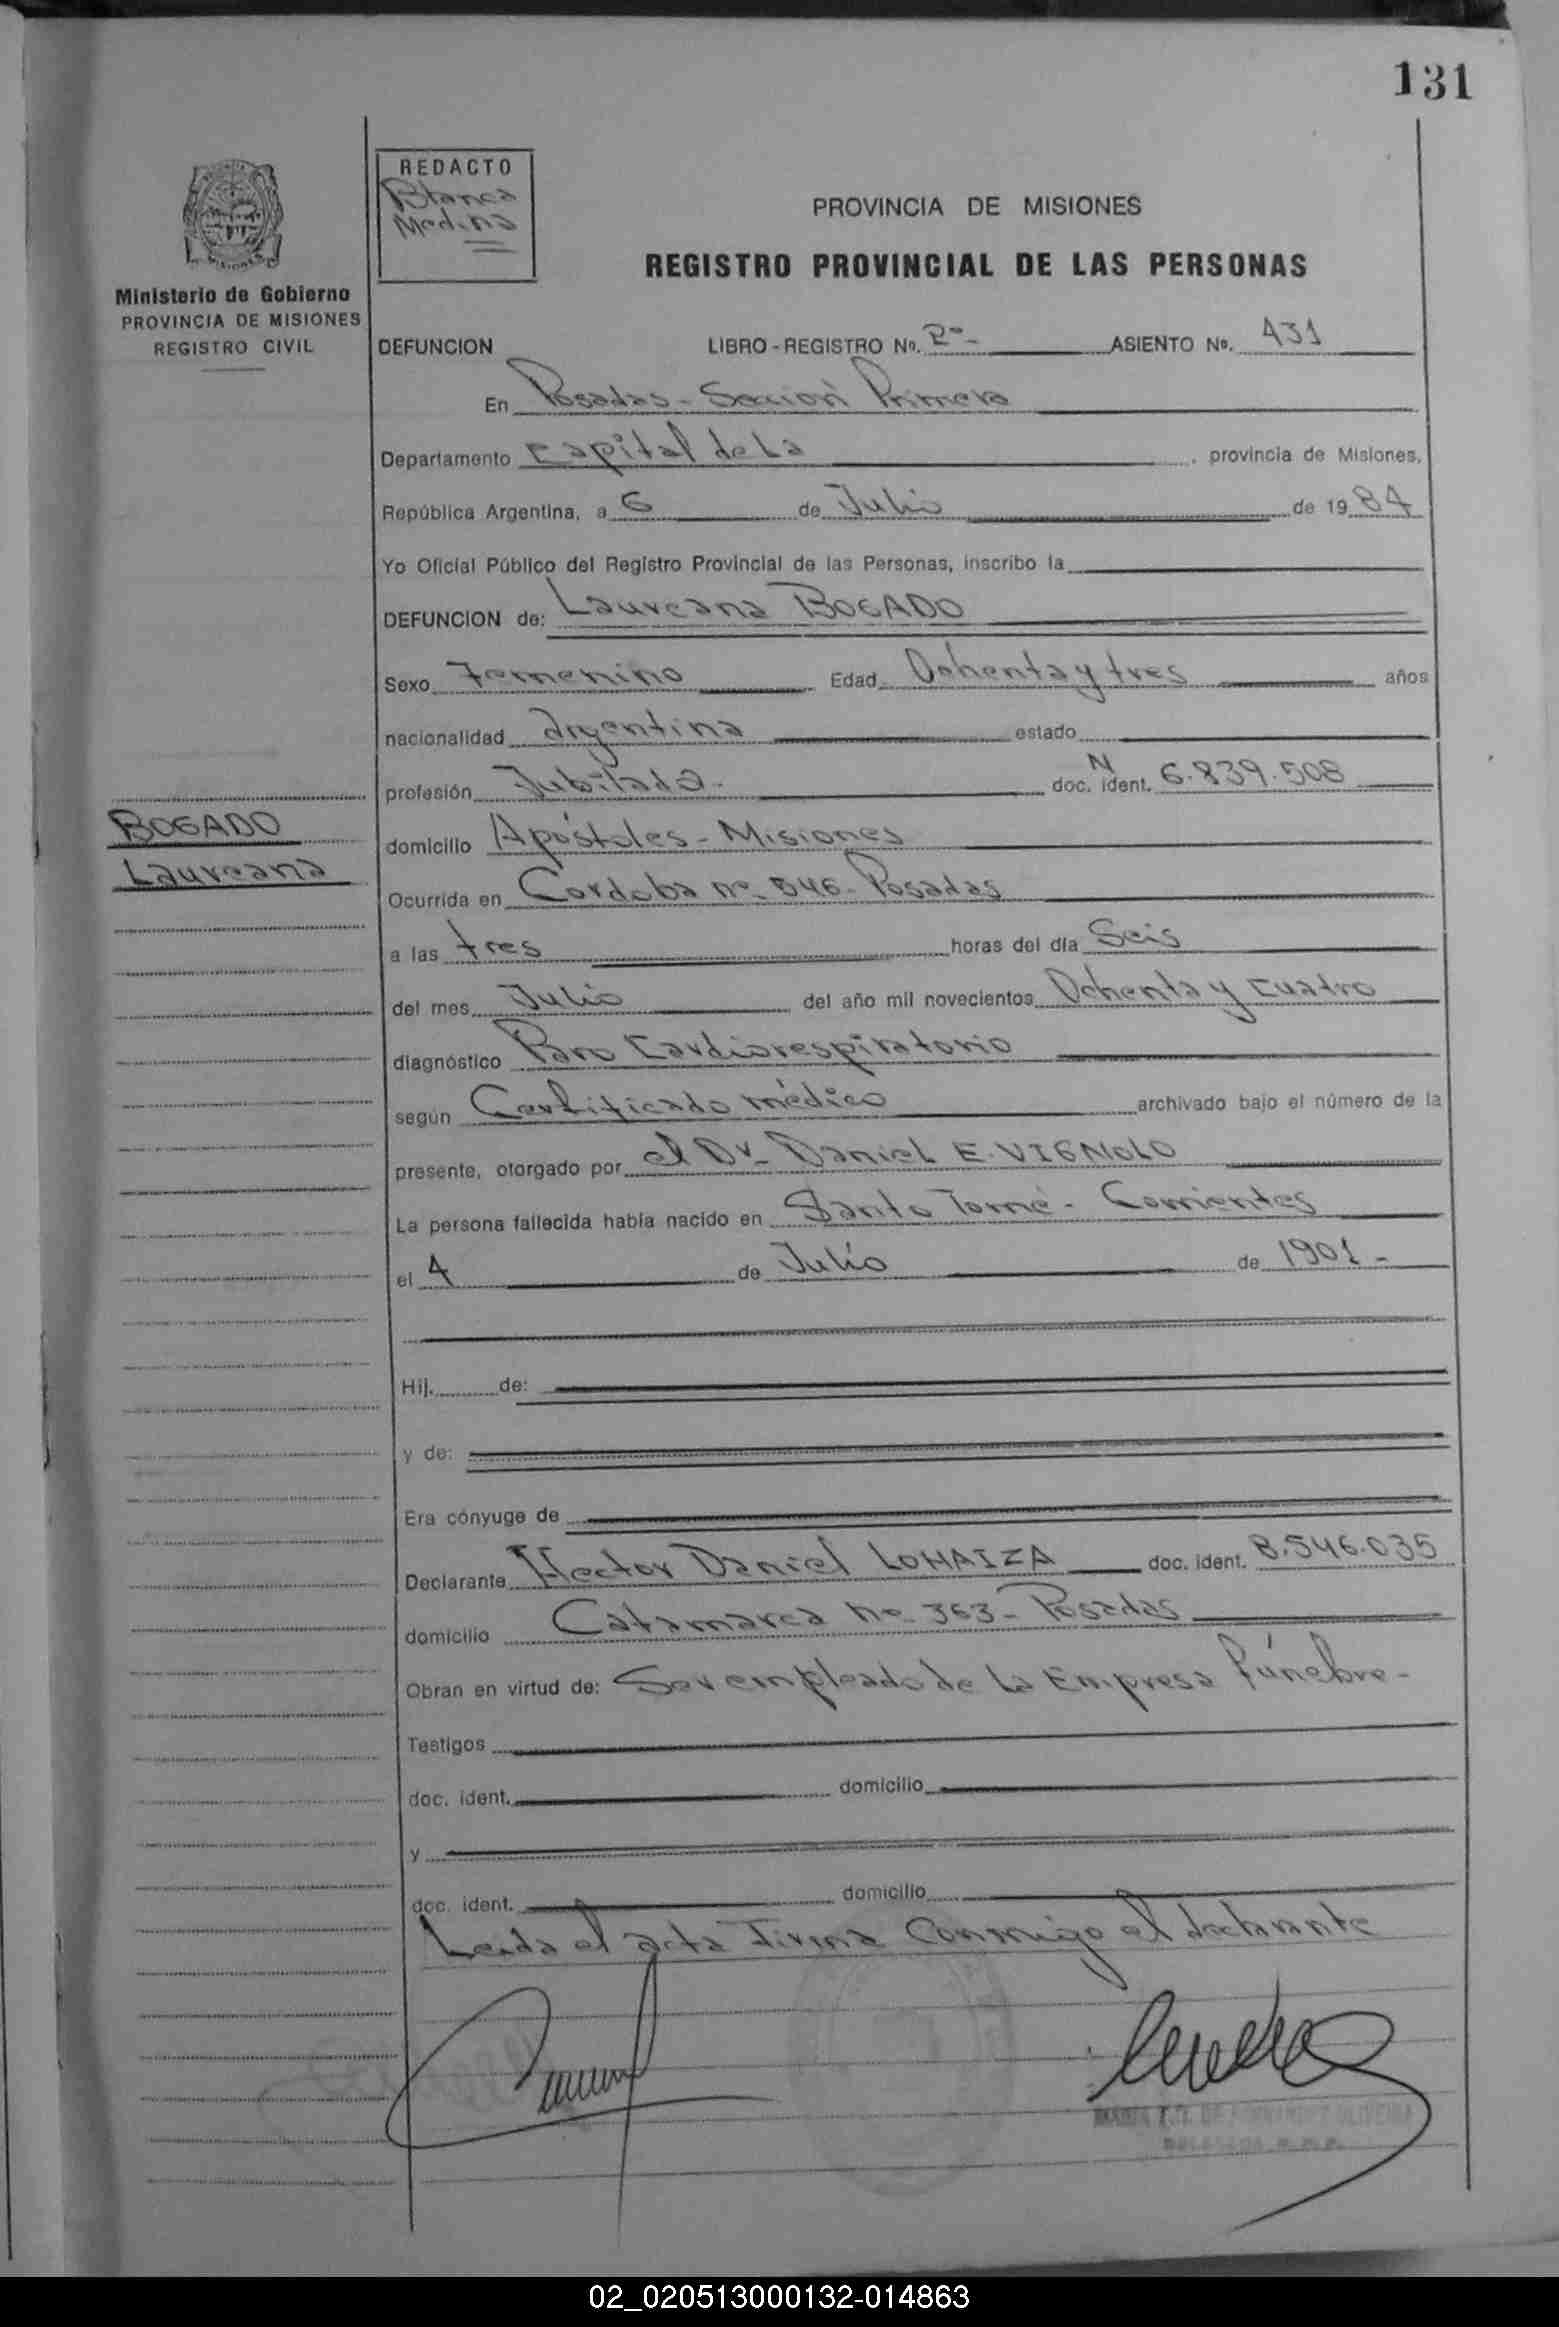 131
REDACTO
Blanca
Medina
Ministerio de Gobierno
PROVINCIA DE MISIONES
REGISTRO CIVIL
PROVINCIA DE MISIONES
REGISTRO PROVINCIAL DE LAS PERSONAS
DEFUNCION LIBRO - REGISTRO Nº. 2º- ASIENTO Nº. 431
En Posadas - Sección Primera
Departamento Capital de La , provincia de Misiones,
República Argentina, a 6 de Julio de 19 84
Yo Oficial Público del Registro Provincial de las Personas, inscribo la
DEFUNCION de: Laureana BOGADO
Sexo Femenino Edad Ochenta y tres años
nacionalidad Argentina estado
profesión Jubilada - doc. ident. N 6.839.508
BOGADO
Laureana
domicilio Apóstoles - Misiones
Ocurrida en Cordoba nº 546 - Posadas
a las tres horas del día Seis
del mes Julio del año mil novecientos Ochenta y cuatro
diagnóstico Paro Cardiorespiratorio
según Certificado médico archivado bajo el número de la
presente, otorgado por el Dr. Daniel E. VIGNOLO
La persona fallecida había nacido en Santo Tomé - Corrientes
el 4 de Julio de 1901 -
Hij. de:
y de:
Era cónyuge de
Declarante Hector Daniel LOHAIZA doc. ident. 8.546.035
domicilio Catamarca nº 363 - Posadas
Obran en virtud de: Ser empleado de la Empresa fúnebre -
Testigos
doc. ident. domicilio
y
doc. ident. domicilio
Leida el acta firma Conmigo el declarante
02_020513000132-014863